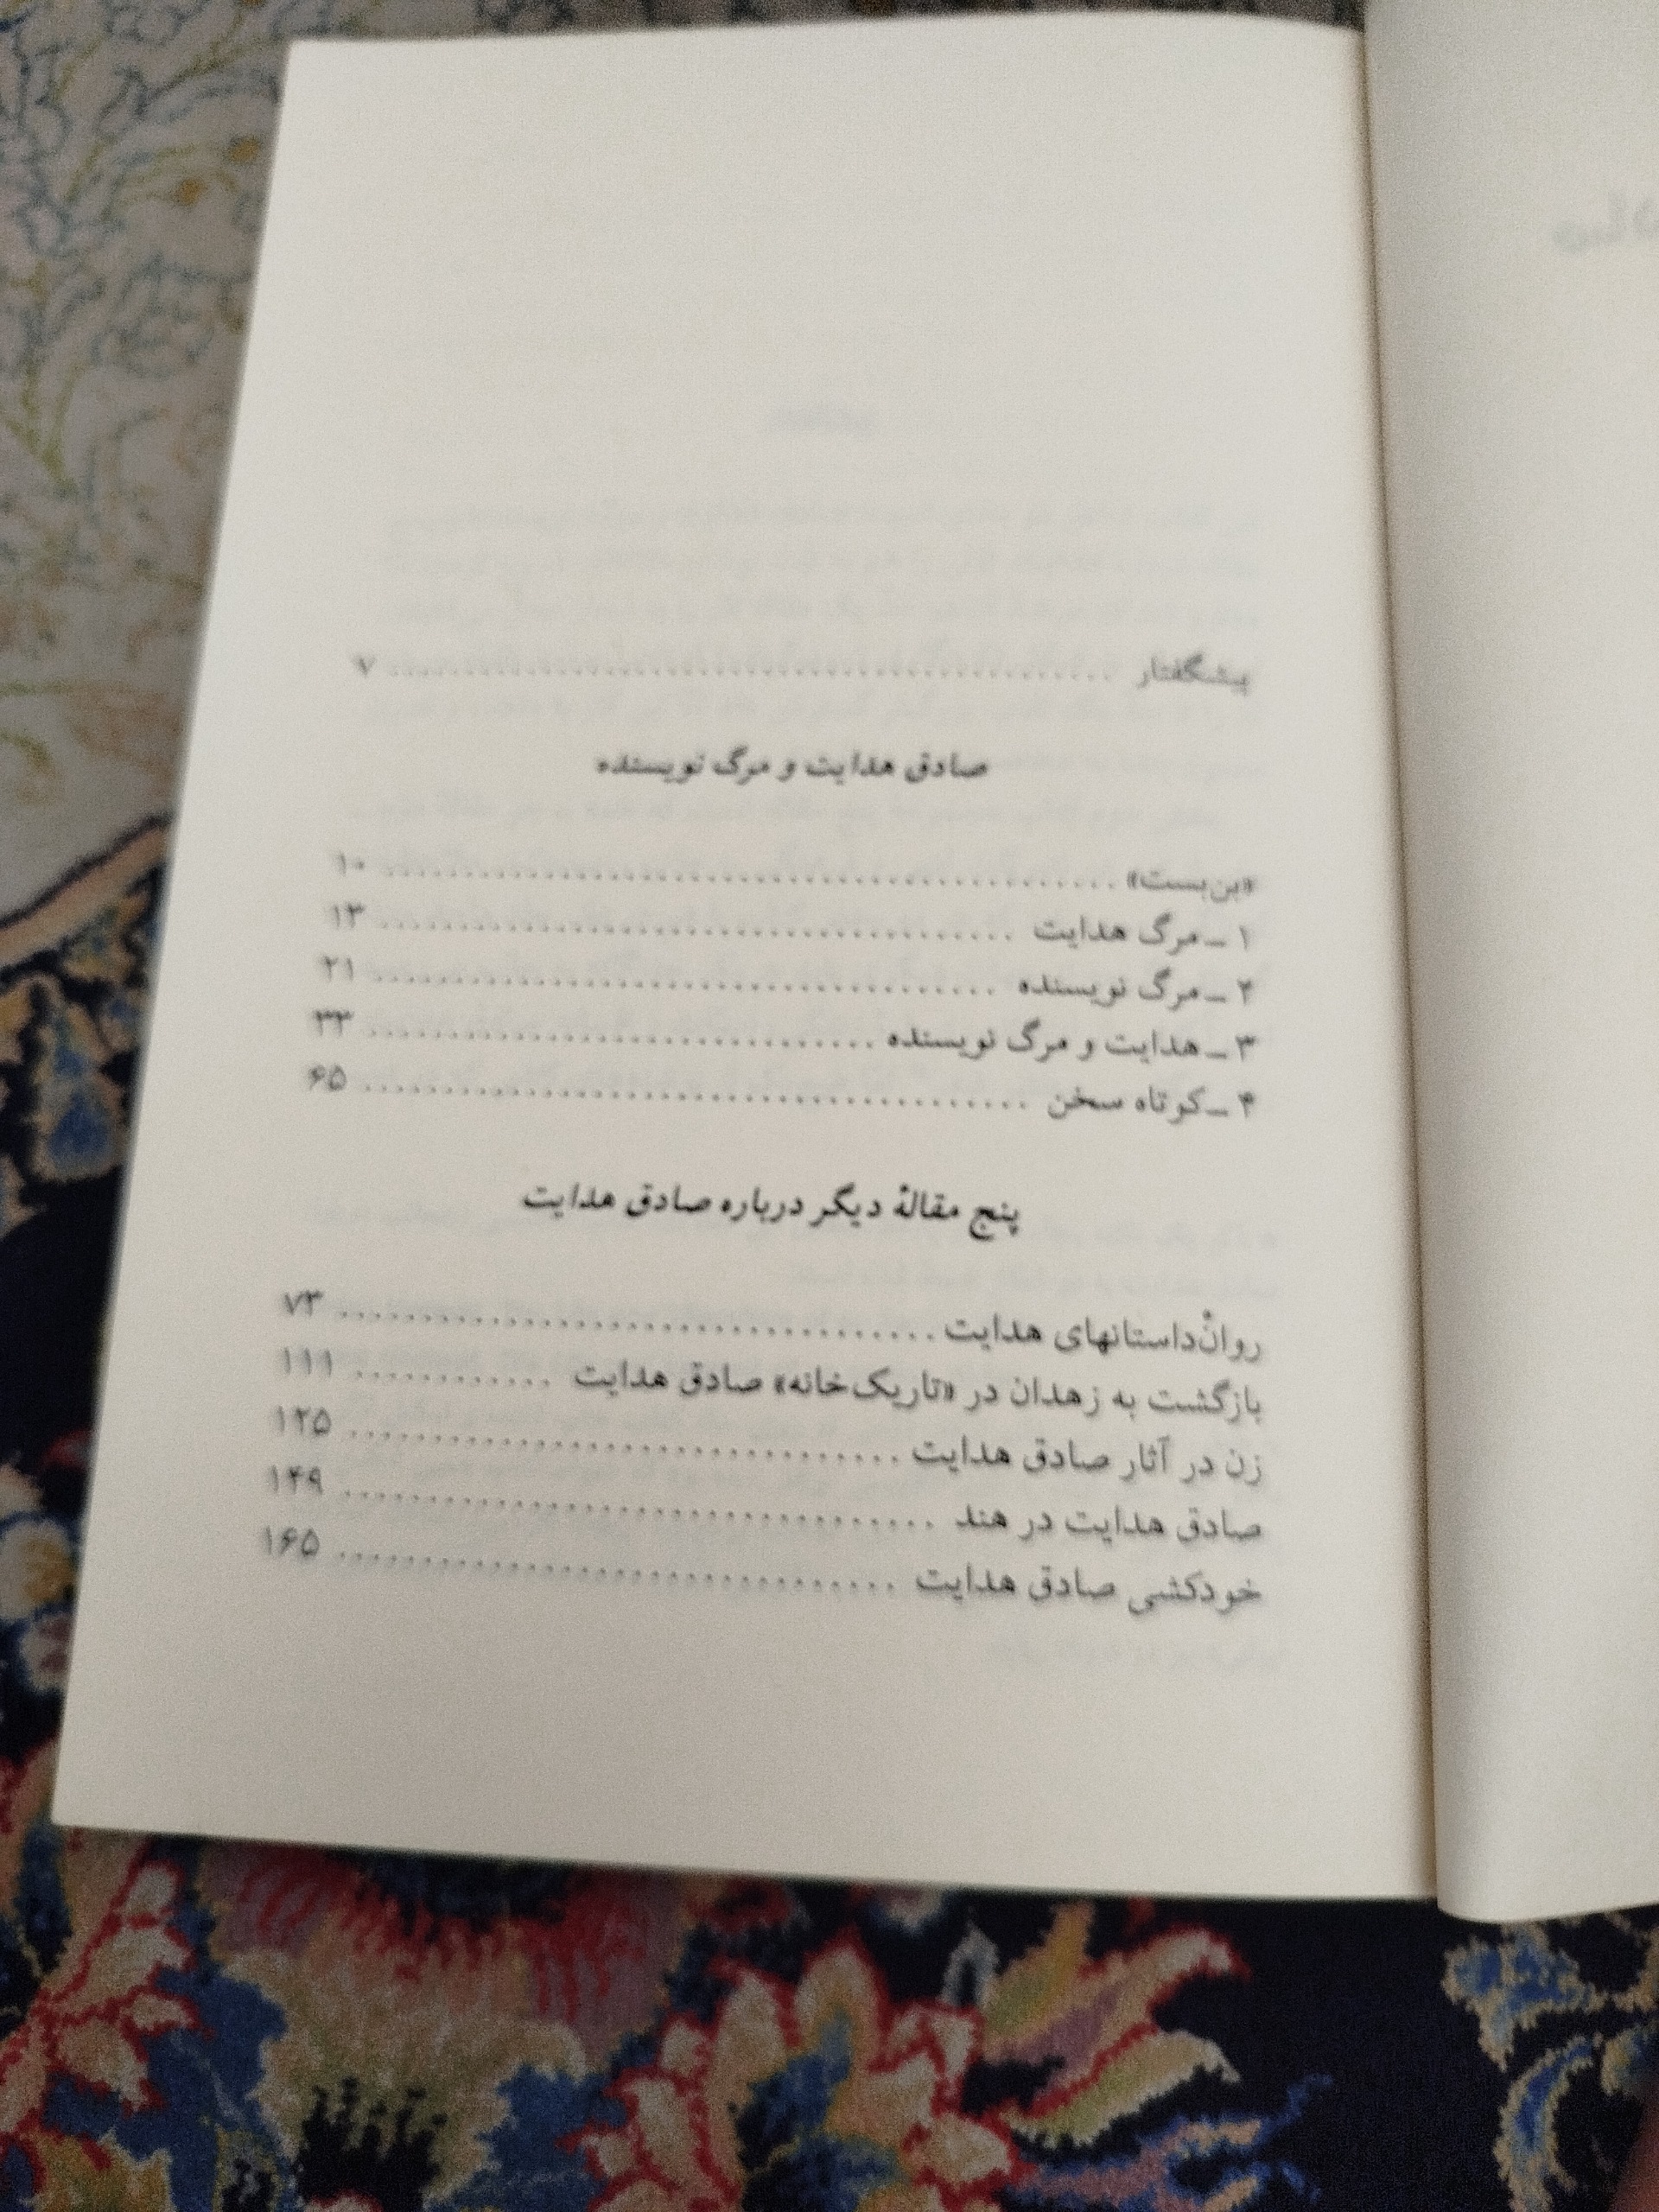 پیشگفتار ........ ۷
صادق هدایت و مرگ نویسنده
«بن‌بست» ........ ۱۰
۱ ـ مرگ هدایت ........ ۱۳
۲ ـ مرگ نویسنده ........ ۲۱
۳ ـ هدایت و مرگ نویسنده ........ ۳۳
۴ ـ کوتاه سخن ........ ۶۵
پنج مقالهٔ دیگر درباره صادق هدایت
روانْ‌داستانهای هدایت ........ ۷۳
بازگشت به زهدان در «تاریک‌خانه» صادق هدایت ........ ۱۱۱
زن در آثار صادق هدایت ........ ۱۲۵
صادق هدایت در هند ........ ۱۴۹
خودکشی صادق هدایت ........ ۱۶۵